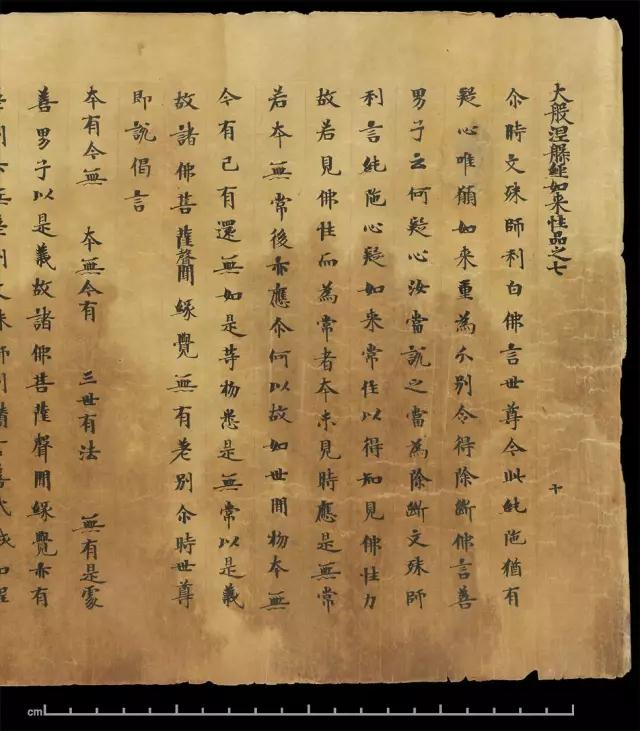 大般涅槃経如来性品之七
十
尒時文殊師利白佛言世尊今此純陁猶有
疑心唯願如来重為分別令得除斷佛言善
男子云何疑心汝當說之當為除斷文殊師
利言純陁心疑如来常住以得知見佛性力
故若見佛性而為常者本未見時應是無常
若本無常後亦應尒何以故如世間物本無
今有已有還無如是等物悉是無常以是義
故諸佛菩薩聲聞縁覺無有差別尒時世尊
即說偈言
本有今無 本無今有 三世有法 無有是處
善男子以是義故諸佛菩薩聲聞縁覺亦有
cm